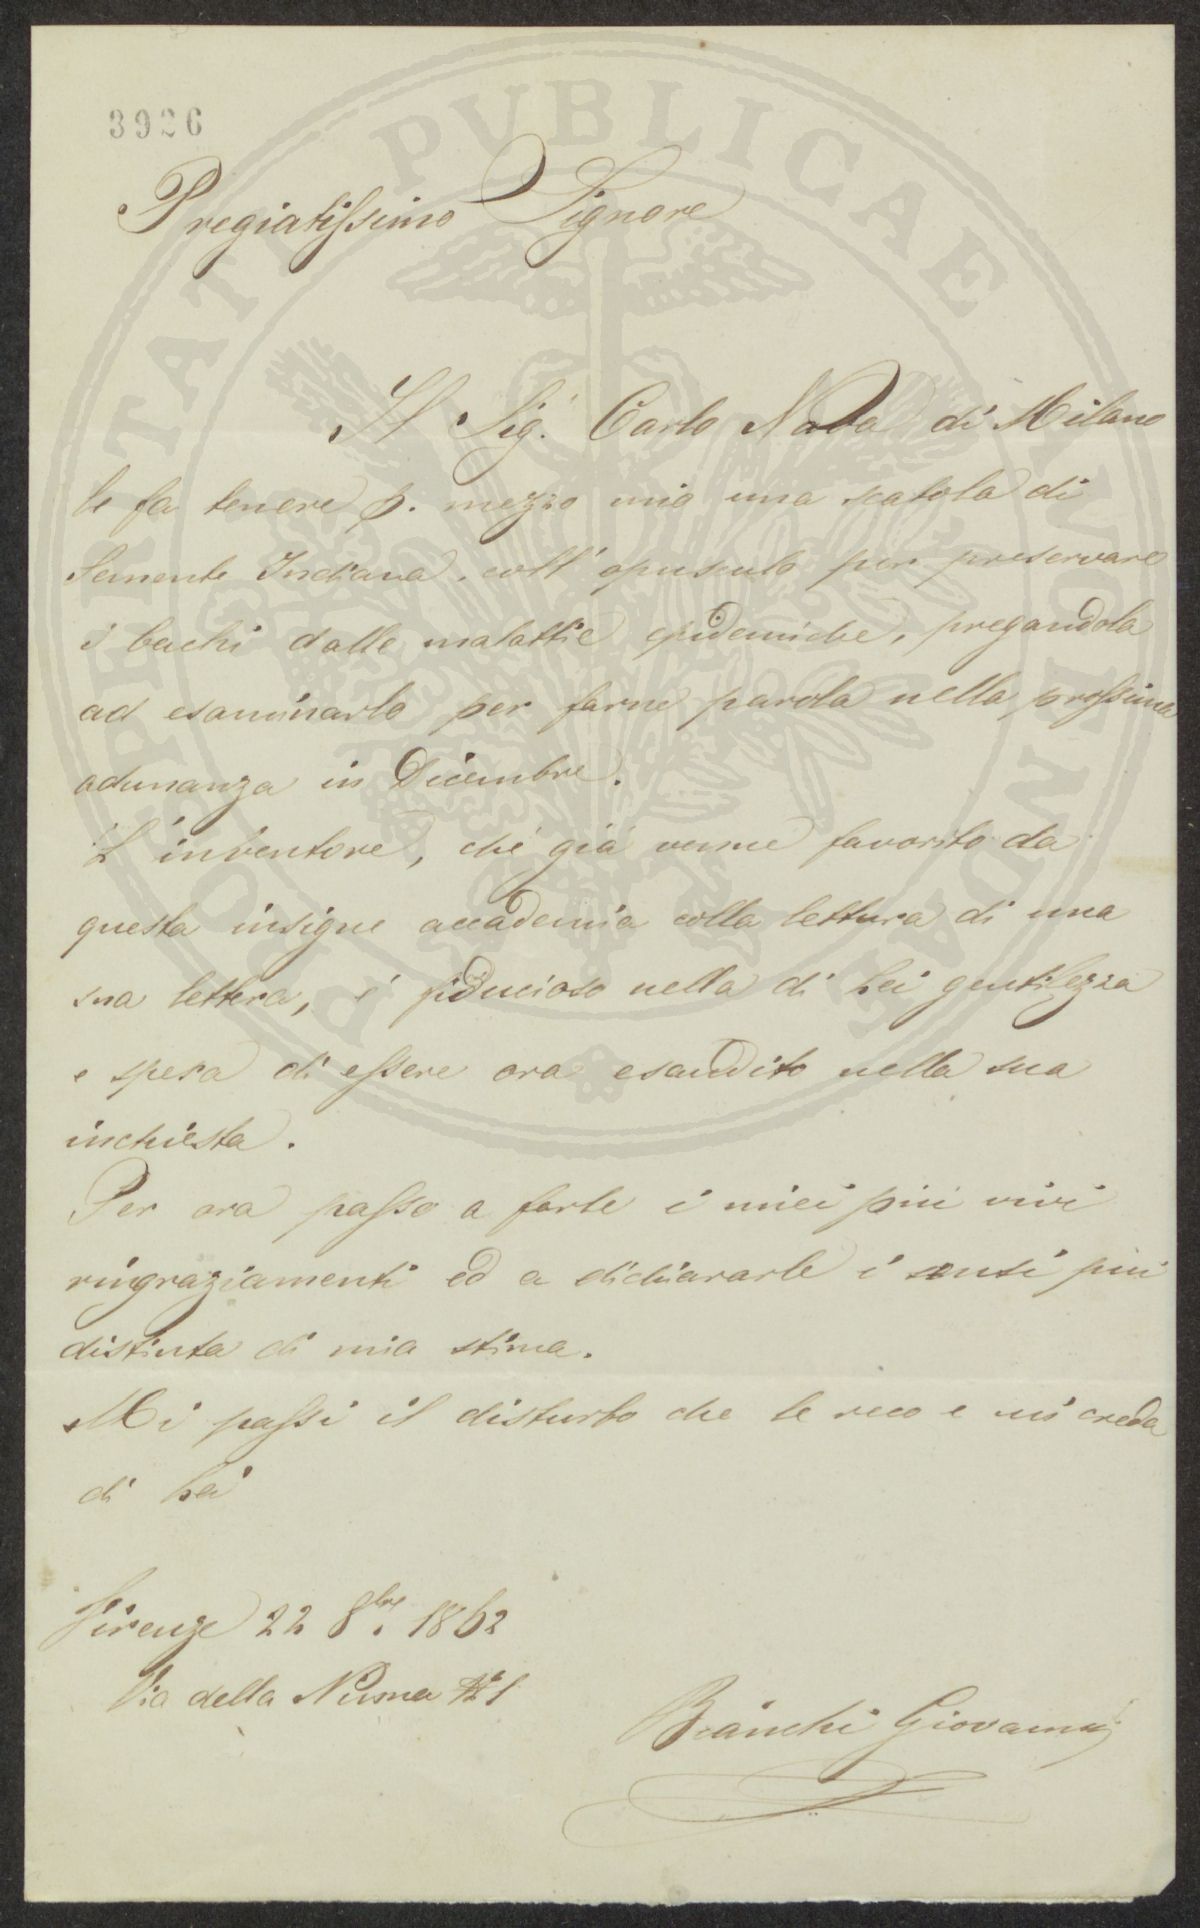 3926
Pregiatissimo Signore
Il Sig. Carlo Nava di Milano
le fa tenere p. mezzo mio una scatola di
Semente Indiana, coll' opusculo per preservare
i bachi dalle malattie epidemiche, pregandola
ad esaminarlo per farne parola nella prossima
adunanza in Dicembre.
L'inventore, che già venne favorito da
questa insigne accademia colla lettura di una
sua lettera, é fiducioso nella di Lei gentilezza
e spera di essere ora esaudito nella sua
inchiesta.
Per ora passo a farle i miei più vivi
ringraziamenti ed a dichiararle i sensi più
distinta di mia stima.
Mi passi il disturbo che le reco e mi creda
di Lei
Firenze 22 8bre. 1862
Via della
Bianchi Giovanni
PROSPERITATI PUBLICAE AUGENDAE